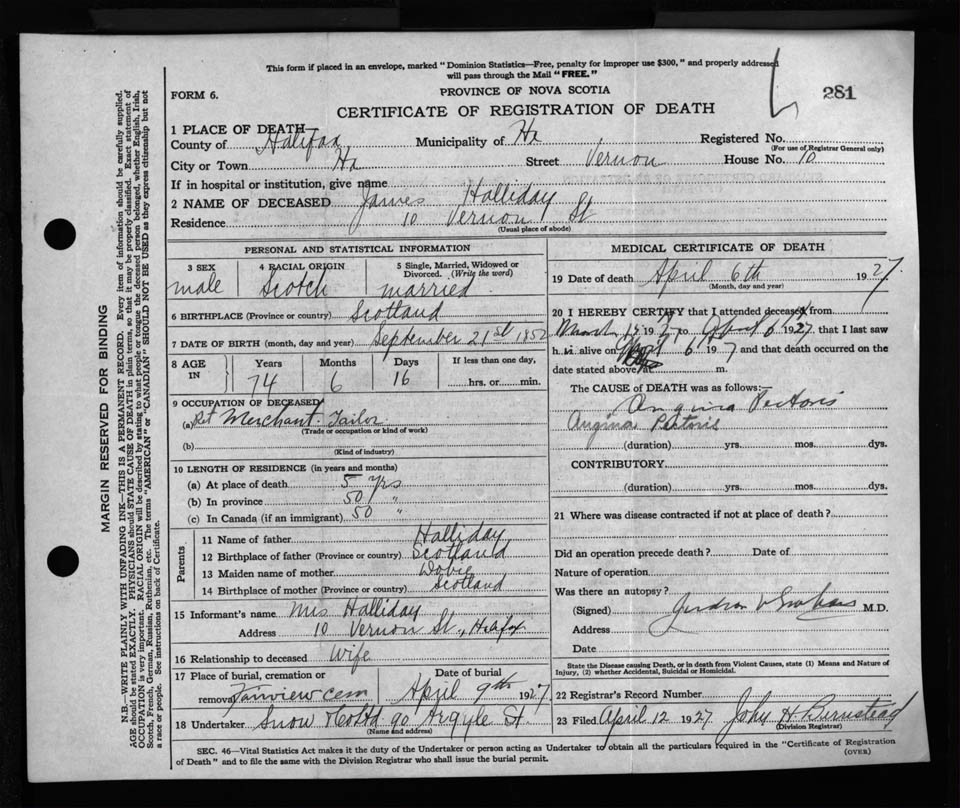 This form if placed in an envelope, marked "Dominion Statistics—Free, penalty for improper use $300," and properly addressed
will pass through the Mail "FREE."
281
PROVINCE OF NOVA SCOTIA
FORM 6.
CERTIFICATE OF REGISTRATION OF DEATH
1 PLACE OF DEATH—
County of Halifax Municipality of Hx Registered No.
(For use of Registrar General only)
City or Town Hx Street Vernon House No. 10
If in hospital or institution, give name
2 NAME OF DECEASED James Halliday
Residence 10 Vernon St
(Usual place of abode)
PERSONAL AND STATISTICAL INFORMATION
3 SEX 4 RACIAL ORIGIN 5 Single, Married, Widowed or
Divorced. (Write the word)
male Scotch married
6 BIRTHPLACE (Province or country) Scotland
7 DATE OF BIRTH (month, day and year) September 21st 1852
8 AGE IN Years Months Days If less than one day,
74 6 16 hrs. or min.
9 OCCUPATION OF DECEASED
(a) Ret Merchant Tailor
(Trade or occupation or kind of work)
(b)
(Kind of industry)
10 LENGTH OF RESIDENCE (in years and months)
(a) At place of death 5 yrs
(b) In province 50 "
(c) In Canada (if an immigrant) 50 "
Parents
11 Name of father Halliday
12 Birthplace of father (Province or country) Scotland
13 Maiden name of mother Dobie
14 Birthplace of mother (Province or country) Scotland
15 Informant's name Mrs Halliday
Address 10 Vernon St., Halifax
16 Relationship to deceased Wife
17 Place of burial, cremation or Date of burial
removal Fairview cem April 9th 1927
18 Undertaker Snow & Co Ltd 90 Argyle St.
(Name and address)
MEDICAL CERTIFICATE OF DEATH
19 Date of death April 6th 1927
(Month, day and year)
20 I HEREBY CERTIFY that I attended deceased from
March 192 to April 6 1927, that I last saw
h im alive on April 6 1927 and that death occurred on the
date stated above, at m.
The CAUSE of DEATH was as follows:
Angina Pectoris
Angina Pectoris
(duration) yrs. mos. dys.
CONTRIBUTORY
(duration) yrs. mos. dys.
21 Where was disease contracted if not at place of death?
Did an operation precede death? Date of
Nature of operation
Was there an autopsy?
(Signed) M.D.
Address
Date
State the Disease causing Death, or in death from Violent Causes, state (1) Means and Nature of
Injury, (2) whether Accidental, Suicidal or Homicidal.
22 Registrar's Record Number
23 Filed April 12 1927. John H Burnstead
(Division Registrar)
SEC. 46—Vital Statistics Act makes it the duty of the Undertaker or person acting as Undertaker to obtain all the particulars required in the "Certificate of Registration
of Death" and to file the same with the Division Registrar who shall issue the burial permit. (OVER)
MARGIN RESERVED FOR BINDING
N.B.—WRITE PLAINLY WITH UNFADING INK—THIS IS A PERMANENT RECORD. Every item of information should be carefully supplied.
AGE should be stated EXACTLY. PHYSICIANS should STATE CAUSE OF DEATH in plain terms, so that it may be properly classified. Exact statement of
OCCUPATION is very important. RACIAL ORIGIN will be described by stating to what people or tongue the deceased person belonged, whether English, Irish,
Scotch, French, German, Russian, Ruthenian, etc. The terms "AMERICAN" or "CANADIAN" SHOULD NOT BE USED as they express citizenship but not
a race or people. See instructions on back of Certificate.